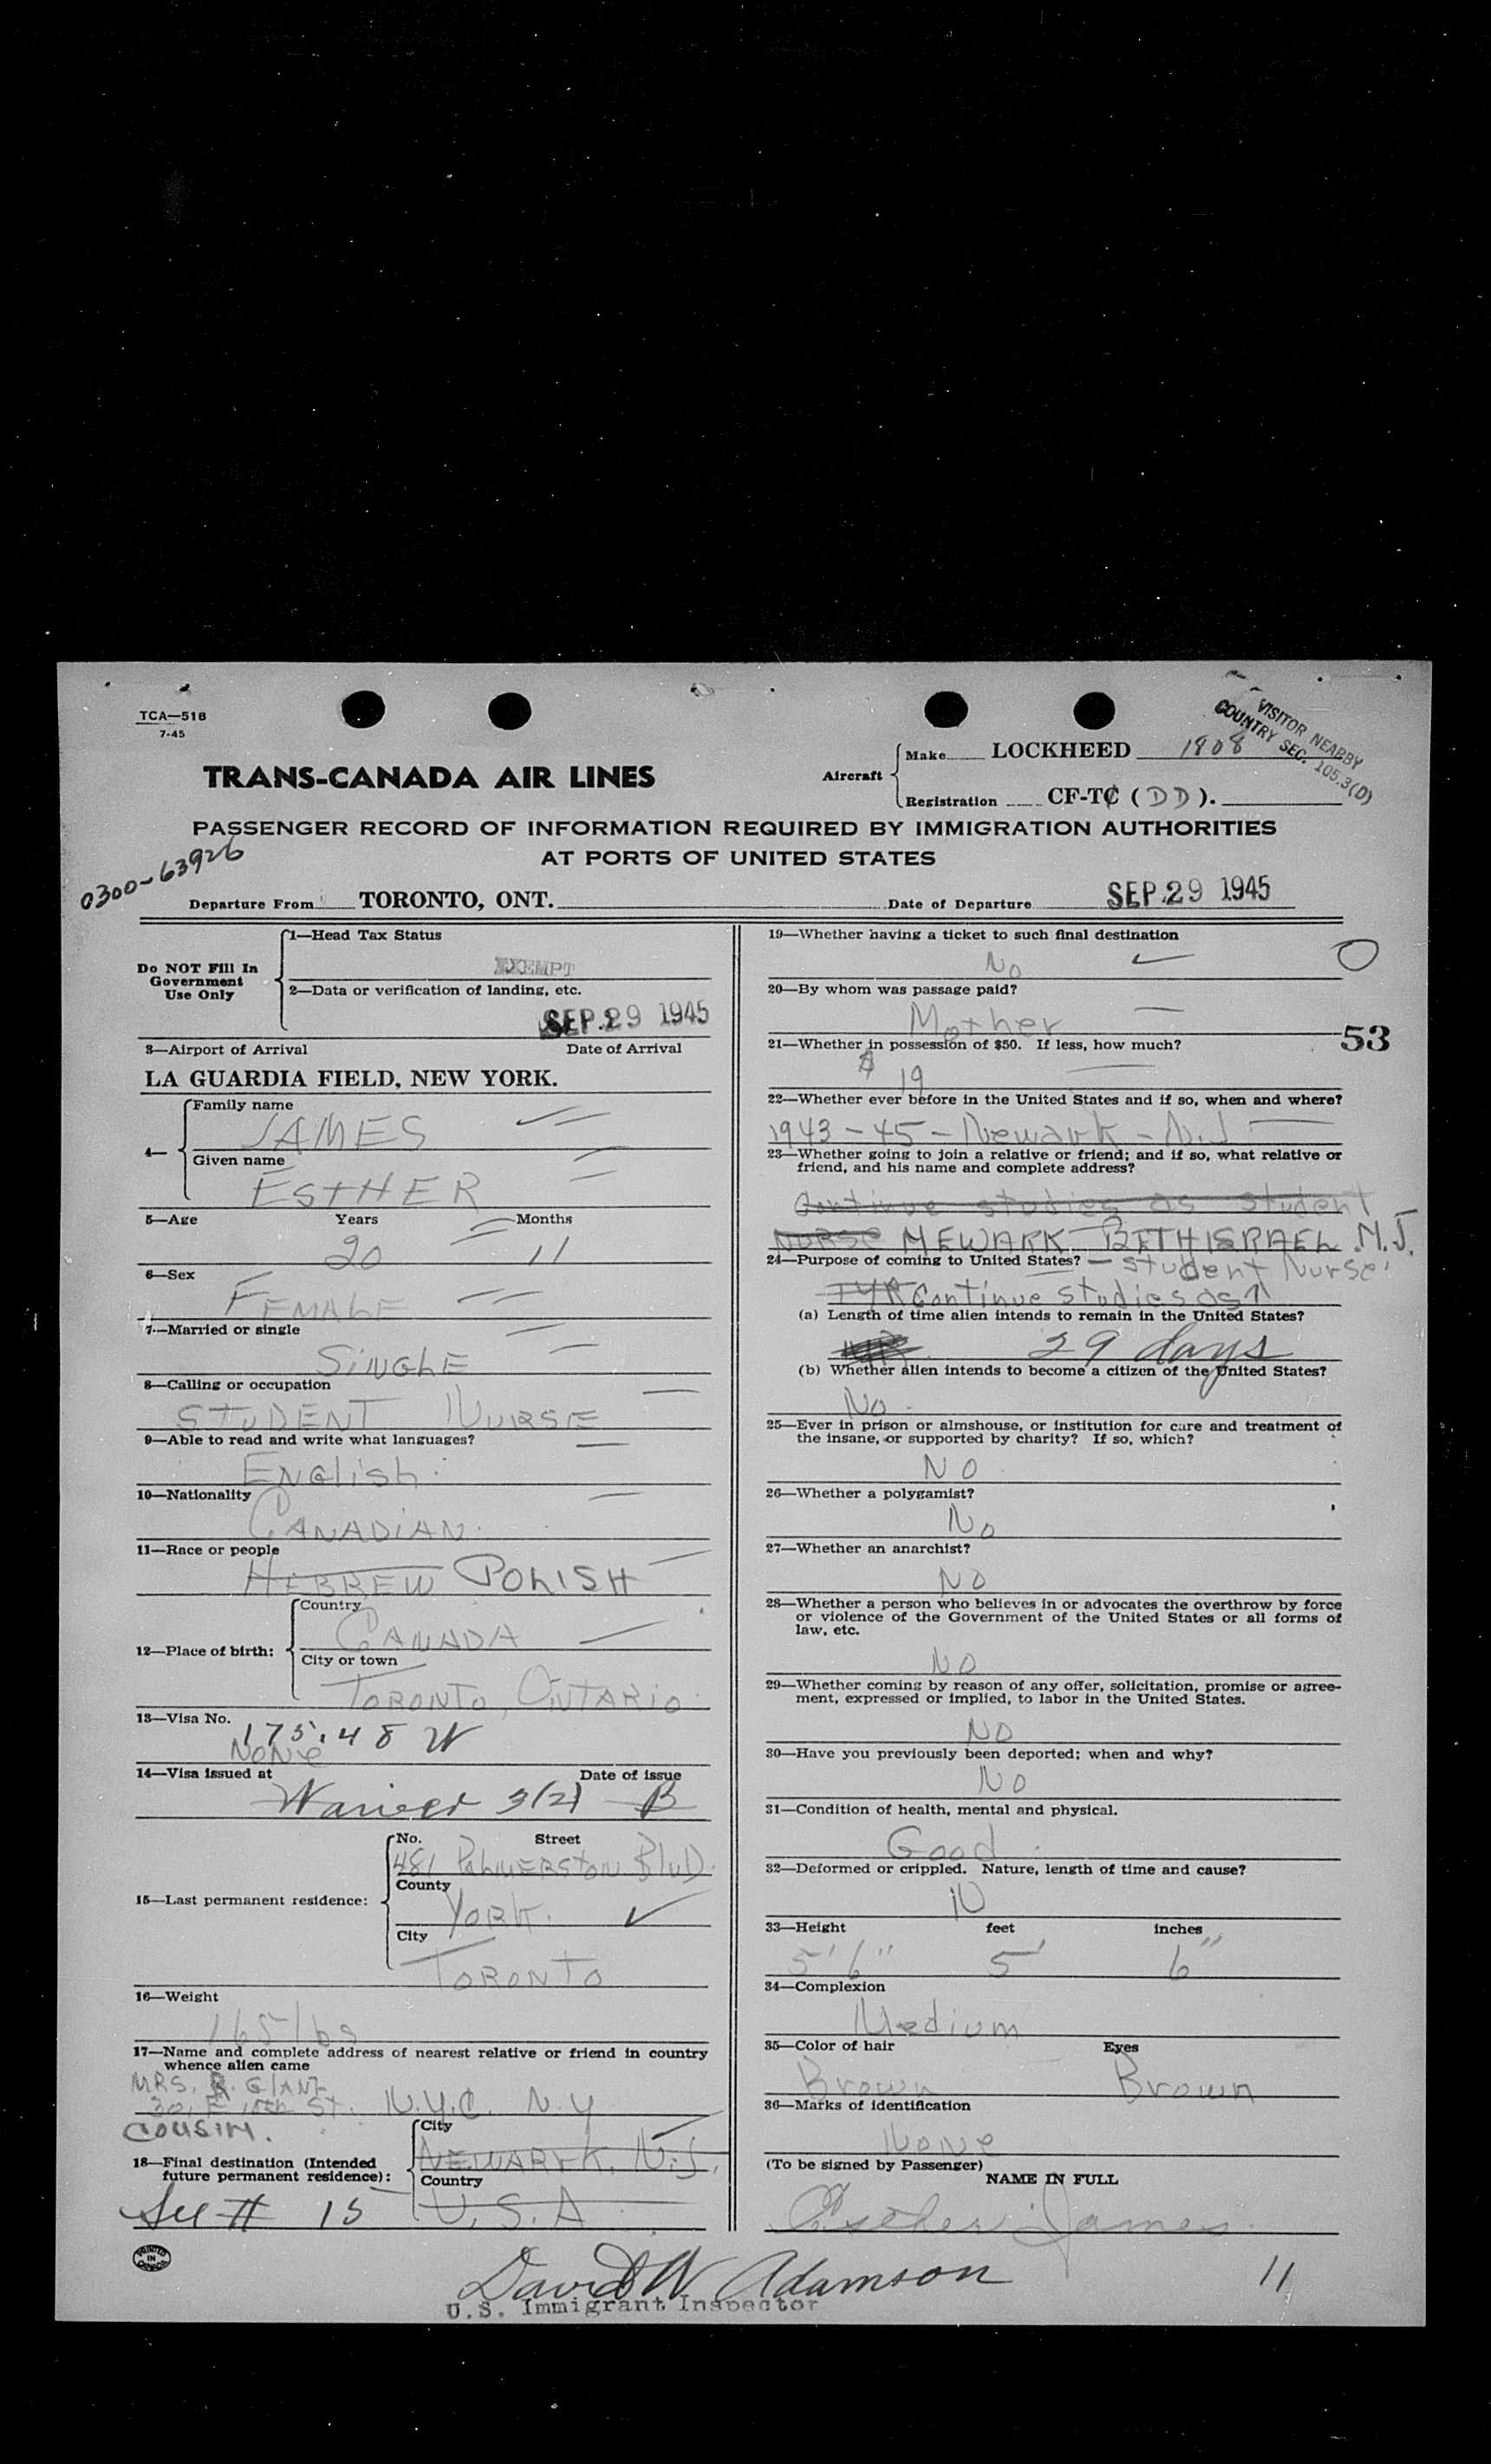 TCA—518
7-45
VISITOR NEARBY
COUNTRY SEC. 105.3(D)
TRANS-CANADA AIR LINES
Aircraft
Make LOCKHEED 1808
Registration CF-TC (DD).
PASSENGER RECORD OF INFORMATION REQUIRED BY IMMIGRATION AUTHORITIES
AT PORTS OF UNITED STATES
0300-63926
Departure From TORONTO, ONT. Date of Departure SEP 29 1945
Do NOT Fill In
Government
Use Only
1—Head Tax Status
EXEMPT
2—Data or verification of landing, etc.
SEP 29 1945
3—Airport of Arrival Date of Arrival
LA GUARDIA FIELD, NEW YORK.
4—
Family name
JAMES
Given name
ESTHER
5—Age Years Months
20 11
6—Sex
FEMALE
7—Married or single
SINGLE
8—Calling or occupation
STUDENT NURSE
9—Able to read and write what languages?
ENGlish.
10—Nationality
CANADIAN.
11—Race or people
HEBREW POLISH
12—Place of birth:
Country
CANADA
City or town
TORONTO, ONTARIO.
13—Visa No.
175.48 W
NONE
14—Visa issued at Date of issue
Waiver 3(2) B
15—Last permanent residence:
No. Street
481 PALMERSTON BlvD.
County
YORK.
City
TORONTO
16—Weight
165 lbs
17—Name and complete address of nearest relative or friend in country
whence alien came
MRS.
St. N.Y.C. N.Y
COUSIN.
18—Final destination (Intended
future permanent residence):
City
NEWARK, N.J.
Country
U.S.A
See # 15
PRINTED
IN
CANADA
19—Whether having a ticket to such final destination
No
20—By whom was passage paid?
Mother
53
21—Whether in possession of $50. If less, how much?
$ 19
22—Whether ever before in the United States and if so, when and where?
1943-45-Newark-N.J
23—Whether going to join a relative or friend; and if so, what relative or
friend, and his name and complete address?
Continue studies as student
NURSE NEWARK BETH ISRAEL N.J.
24—Purpose of coming to United States? — student Nurse
Continue studies as
(a) Length of time alien intends to remain in the United States?
29 days
(b) Whether alien intends to become a citizen of the United States?
No.
25—Ever in prison or almshouse, or institution for care and treatment of
the insane, or supported by charity? If so, which?
NO
26—Whether a polygamist?
No
27—Whether an anarchist?
NO
28—Whether a person who believes in or advocates the overthrow by force
or violence of the Government of the United States or all forms of
law, etc.
NO
29—Whether coming by reason of any offer, solicitation, promise or agree-
ment, expressed or implied, to labor in the United States.
NO
30—Have you previously been deported; when and why?
NO
31—Condition of health, mental and physical.
Good.
32—Deformed or crippled. Nature, length of time and cause?
N
33—Height feet inches
5' 6" 5' 6"
34—Complexion
Medium
35—Color of hair Eyes
Brown Brown
36—Marks of identification
None
(To be signed by Passenger)
NAME IN FULL
Esther James.
David W. Adamson
U.S. Immigrant Inspector
11